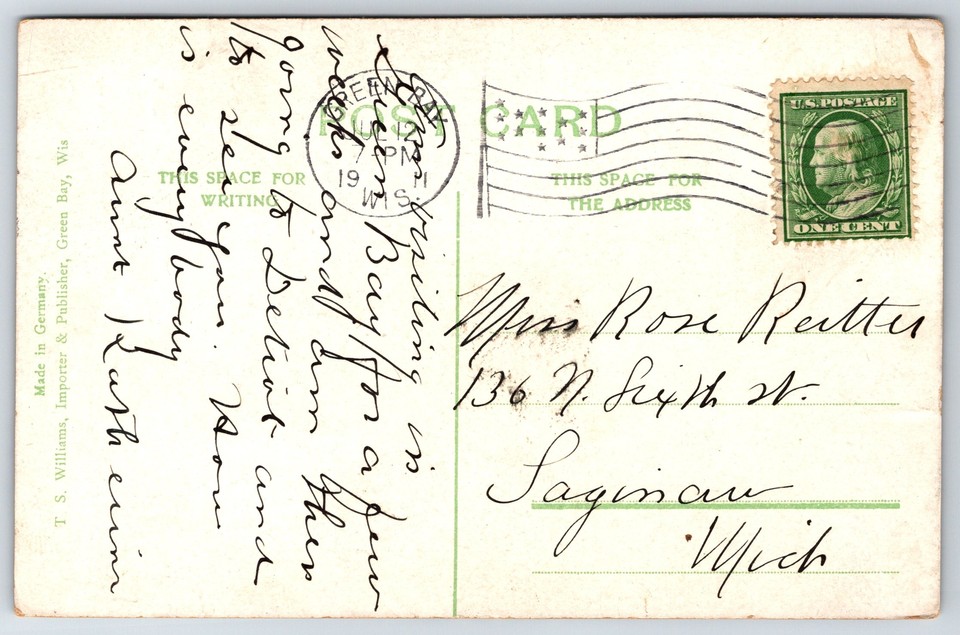 POST CARD
THIS SPACE FOR
WRITING
THIS SPACE FOR
THE ADDRESS
GREEN BAY
7 PM
19 11
WIS
U.S. POSTAGE
ONE CENT
Am visiting in
Green Bay for a few
weeks and am then
going to Detroit and
to see you. How
is everybody
Aunt Katherine
Miss Rose Reitter
136 N. Sixth st.
Saginaw
Mich
Made in Germany.
T. S. Williams, Importer & Publisher, Green Bay, Wis